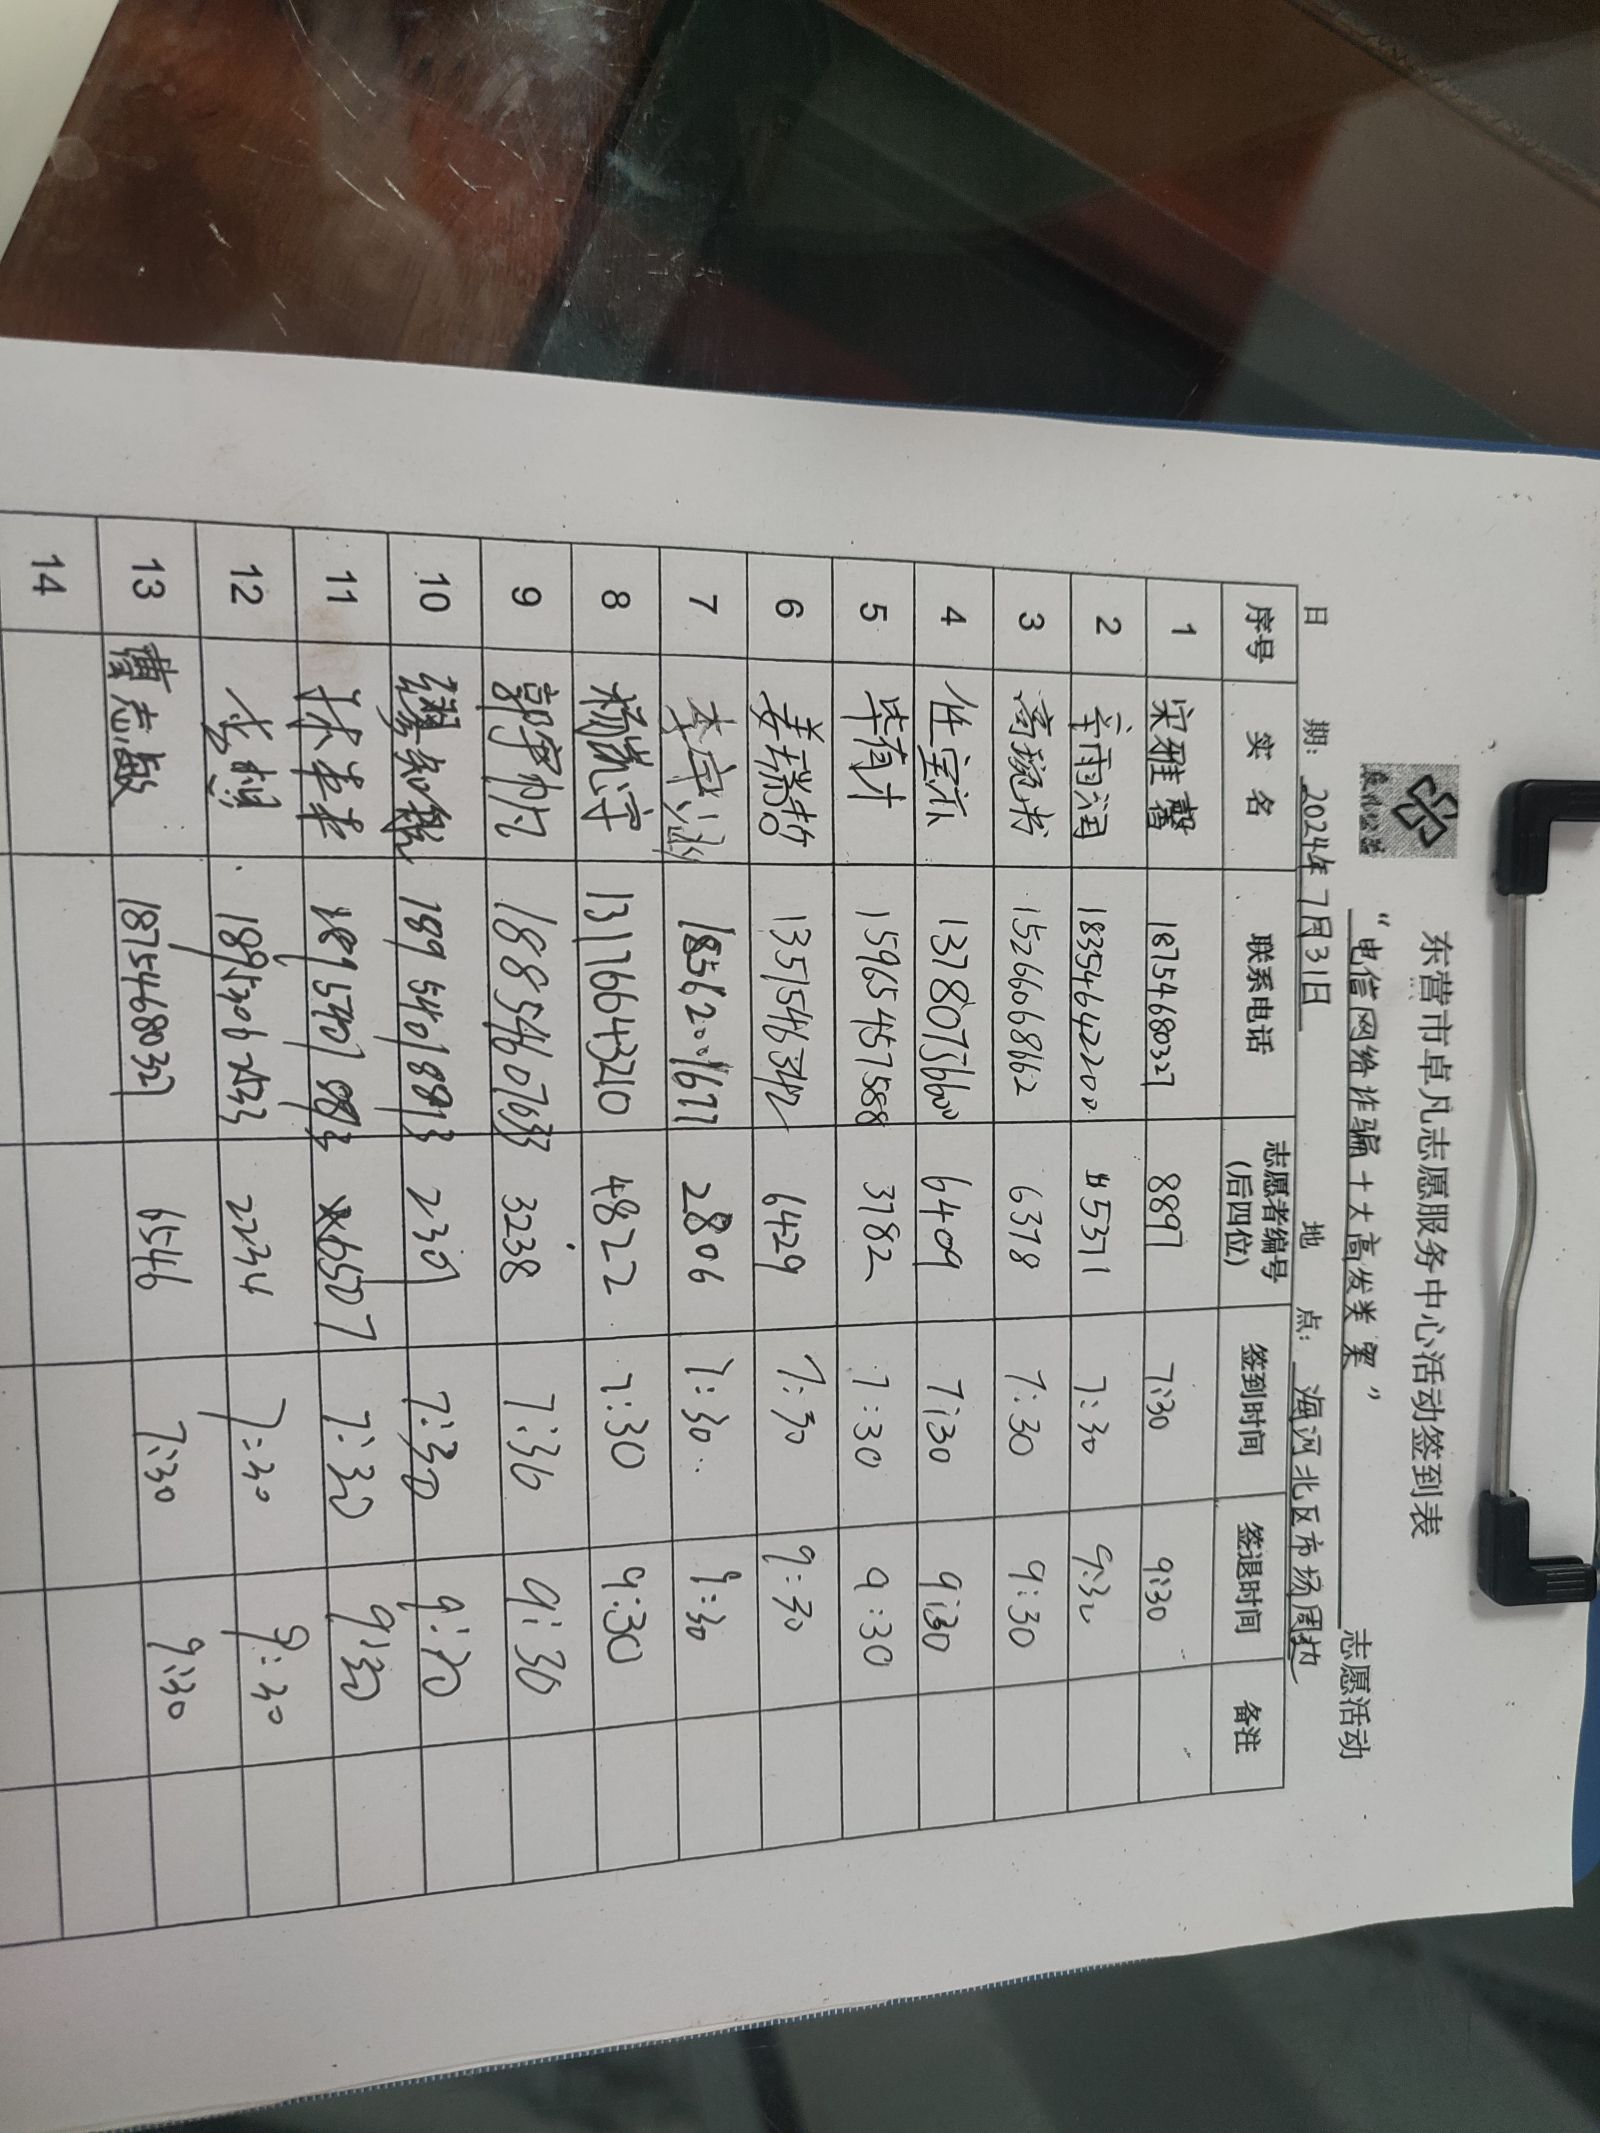 东营市卓凡志愿服务中心活动签到表
“电信网络诈骗十大高发类案” 志愿活动
日 期：2024年7月31日 地 点：海河北区市场周边
序号 实 名 联系电话 志愿者编号(后四位) 签到时间 签退时间 备注
1 宋雅馨 18754680327 8897 7:30 9:30
2 雨润 18354642200 5371 7:30 9:30
3 15266068662 6378 7:30 9:30
4 任宝 13780756600 6409 7:30 9:30
5 毕有才 15965457588 3782 7:30 9:30
6 姜瑞哲 6429 7:30 9:30
7 李 18562001677 2806 7:30 9:30
8 杨岚守 13176643210 4822 7:30 9:30
9 郭 18854607633 3238 7:36 9:36
10 18954018893 2309 7:30 9:30
11 6507 7:30 9:30
12 2234 7:30 9:30
13 曹志敏 18754680327 6546 7:30 9:30
14